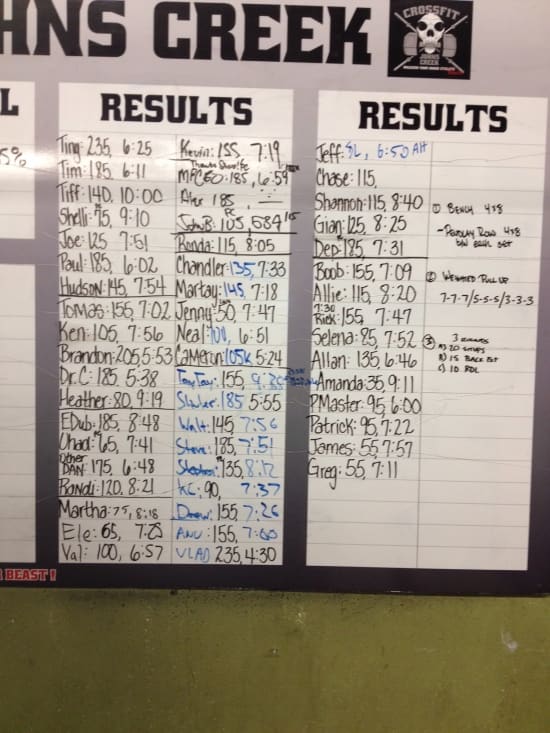 HNS CREEK
CROSSFIT
JOHNS CREEK
L
5%
RESULTS
Ting: 235, 6:25
Tim: 185, 6:11
Tiff: 140, 10:00
Shelli: 75, 9:10
Joe: 125 7:51
Paul: 185, 6:02
Hudson: 145, 7:54
Tomas: 155, 7:02
Ken: 105, 7:56
Brandon: 205, 5:53
Dr. C: 185, 5:38
Heather: 80, 9:19
EDub: 185, 8:48
Chad: 65, 7:41
Other DAN: 175, 6:48
Randi: 120, 8:21
Martha: 75, 8:18
Ele: 65, 7:25
Val: 100, 6:57
Kevin: 155, 7:19
MFCEO: 185, 6:59
Alex 185,
John B: 105, 584
Ronda: 115, 8:05
Chandler: 135, 7:33
Martay: 145, 7:18
Jenny: 50, 7:47
Neal: 100, 6:51
Cameron: 105k 5:24
Tay Tay: 155,
185 5:55
Walt: 145, 7:56
Steve: 185, 7:51
Stephen: 135, 8:12
KC: 90, 7:37
Drew: 155, 7:26
ANU: 155, 7:00
VLAD 235, 4:30
RESULTS
Jeff: SL, 6:50 AH
Chase: 115,
Shannon: 115, 8:40
Gian: 125, 8:25
Dep: 185, 7:31
Boob: 155, 7:09
Allie: 115, 8:20
7:30
Rick: 155, 7:47
Selena: 85, 7:52
Allan: 135, 6:46
Amanda: 35, 9:11
PMaster: 95, 6:00
Patrick: 95, 7:22
James: 55, 7:57
Greg: 55, 7:11
① BENCH 4x8
- PENDLAY ROW 4x8
b/w each set
② WEIGHTED PULL UP
7-7-7/5-5-5/3-3-3
③ 3 ROUNDS
A) 20 SITUPS
B) 15 BACK EXT
C) 10 RDL
BEAST!